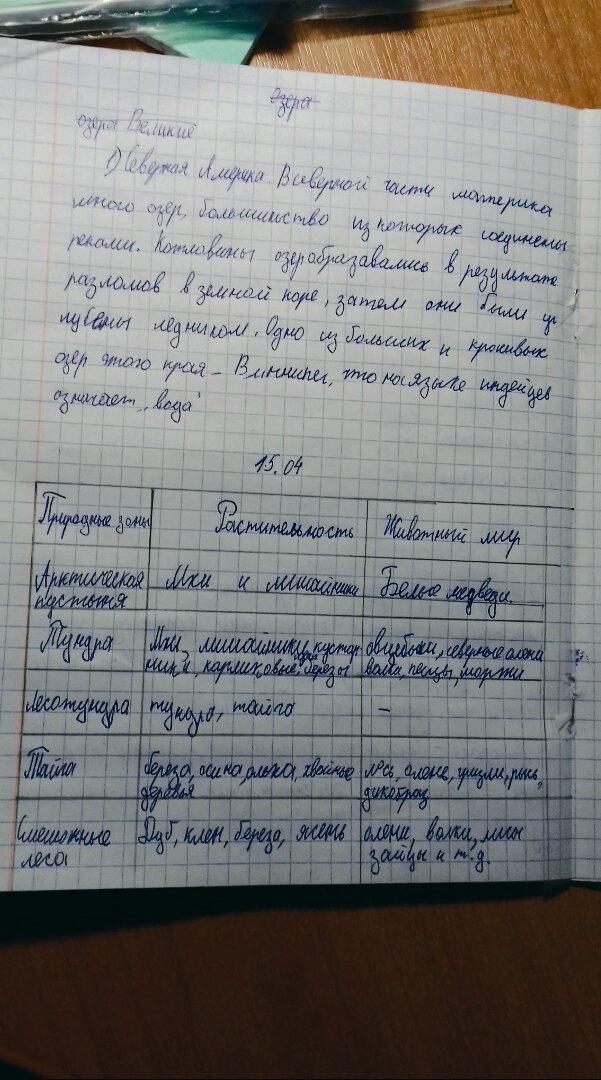 Озера
озера Великие
1) Северная Америка. В северной части материка
много озер, большинство из которых соединены
реками. Котловины озер образавались в результате
разломов в земной коре, затем они были уг
лублены ледником. Одно из больших и красивых
озер этого края – Виннипег, что на языке индейцев
означает „вода“
15.04
Природные зоны Растительность Животный мир
Арктическая Мхи и лишайники Белые медведи.
пустыня
Тундра Мхи, лишайники, кустар овцебыки, северные олени
ники, карликовые березы волки, песцы, моржи
Лесотундра тундра, тайга –
Тайга береза, осина, ольха, хвойные лось, олене, гризли, рысь,
деревья дикобраз
Смешаные Дуб, клен, береза, ясень олени, волки, лисы
леса зайцы и т.д.